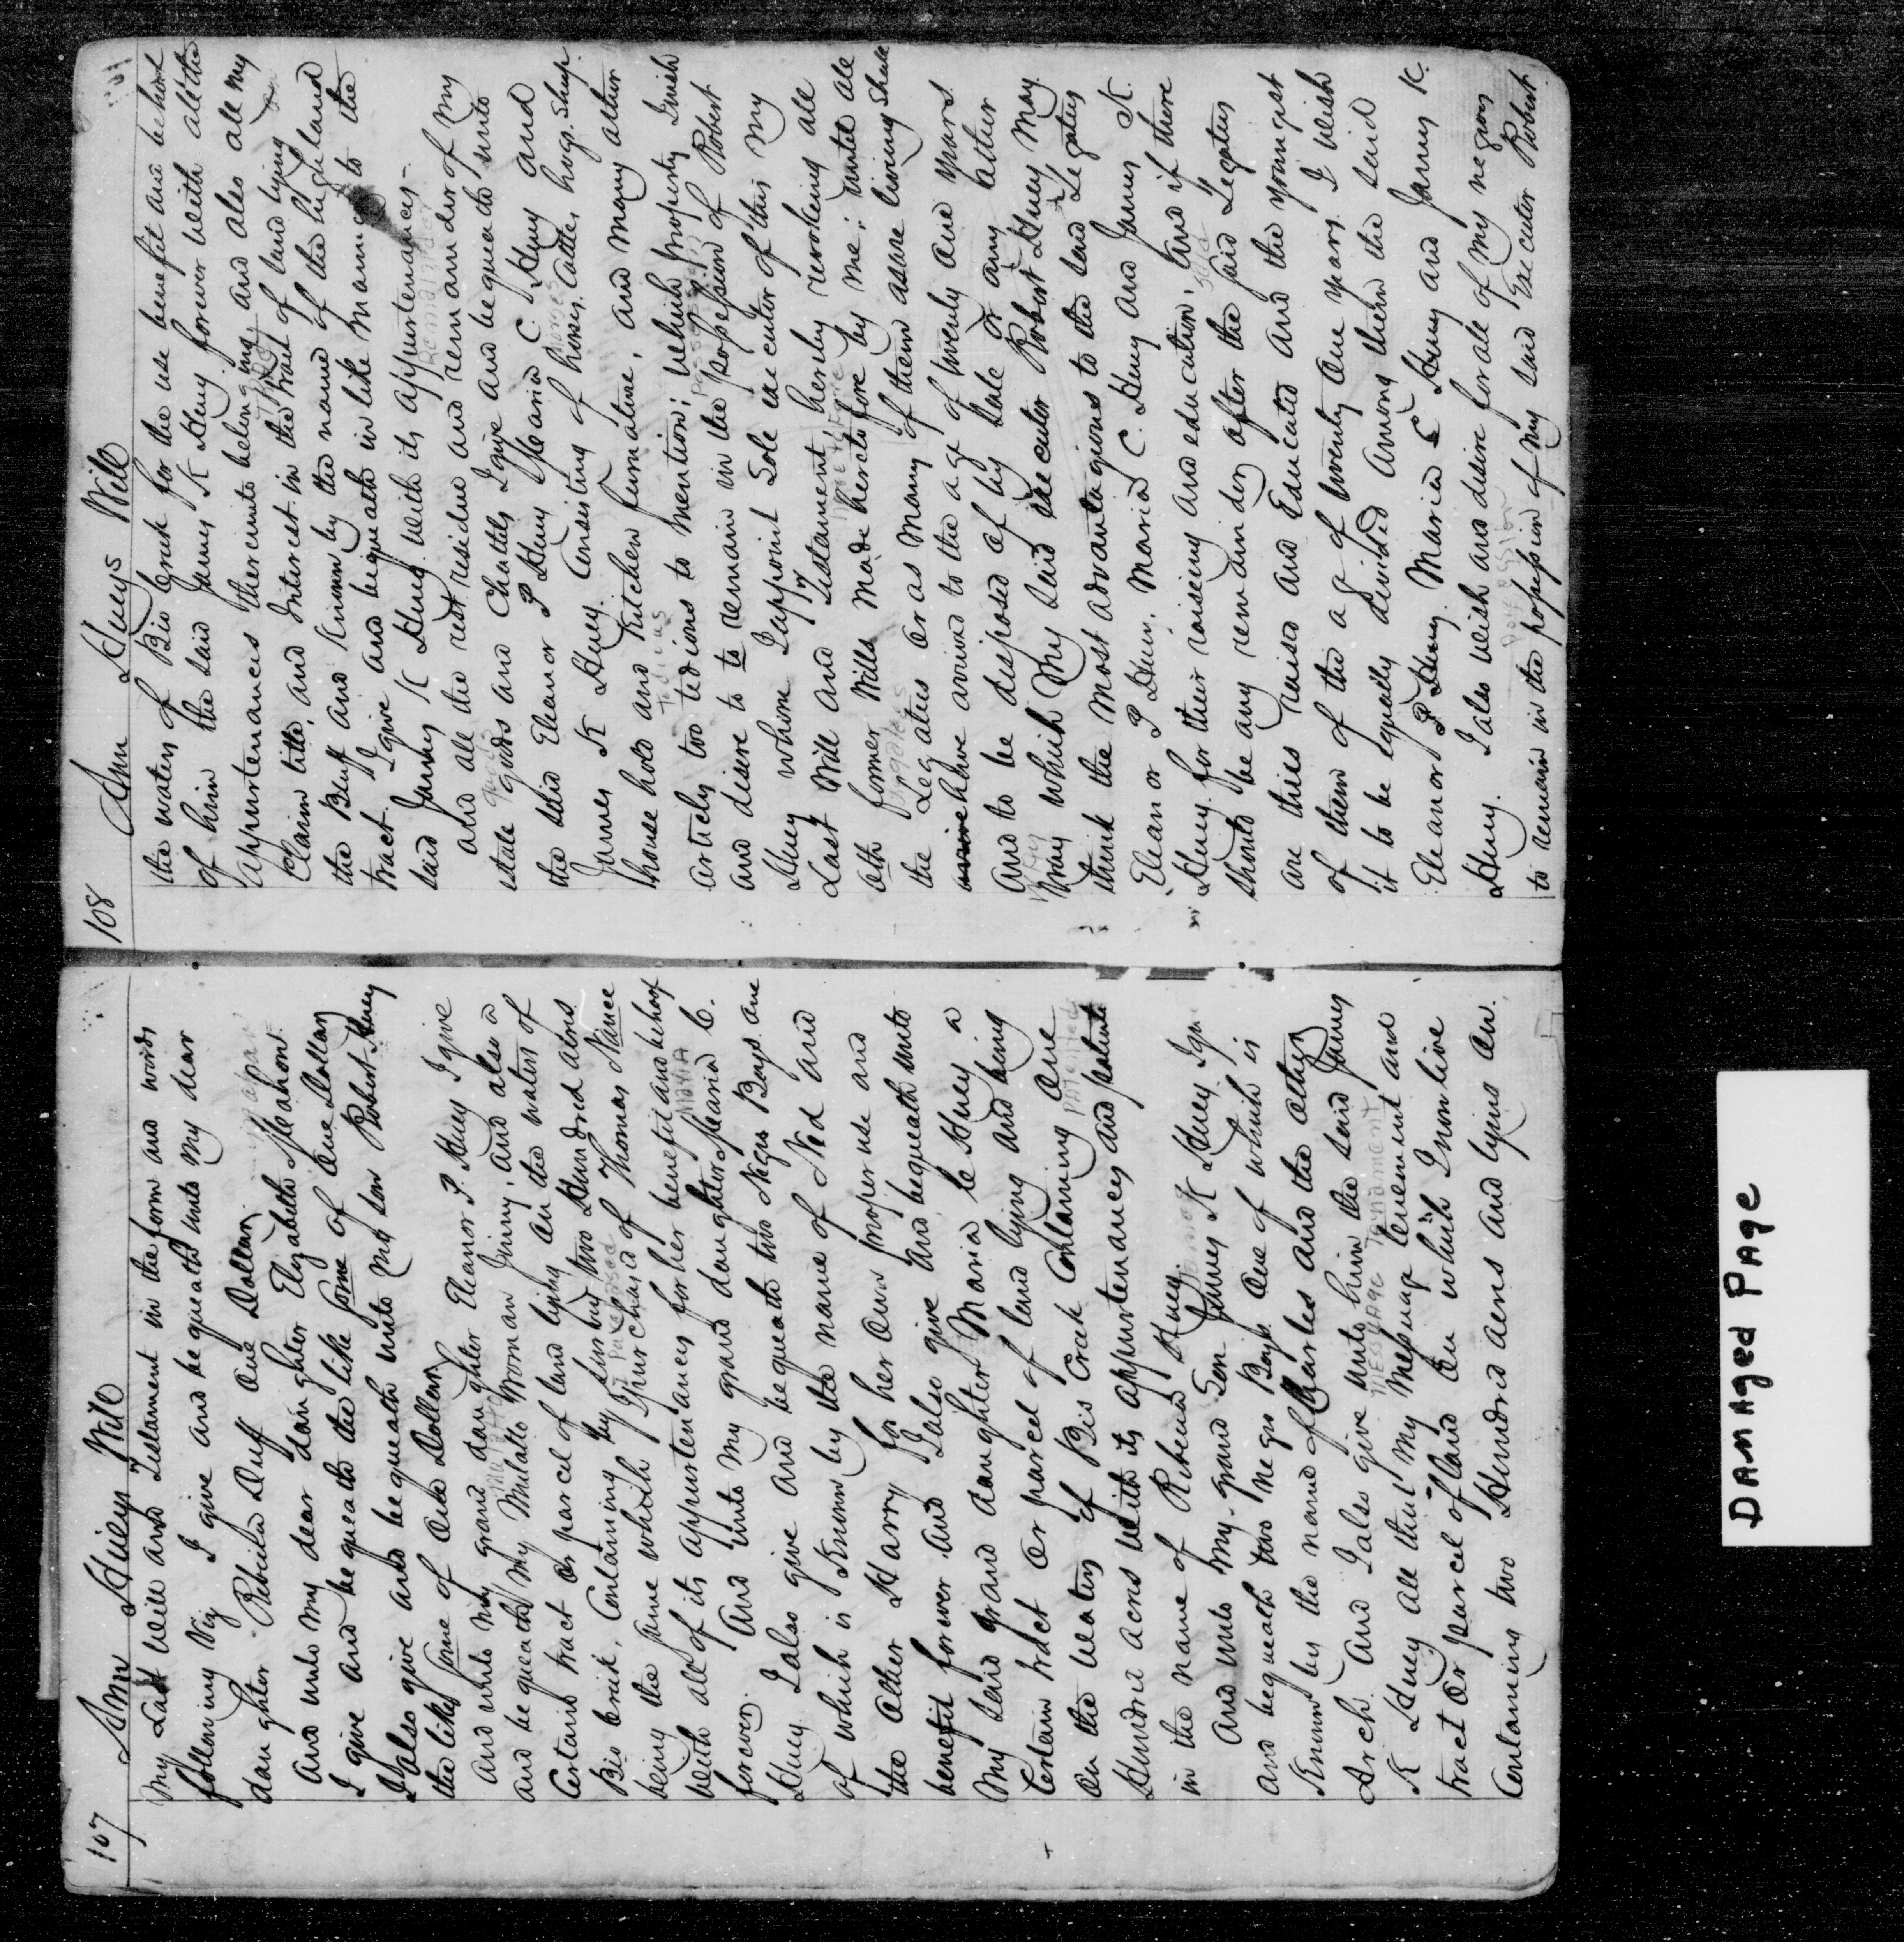 107 Ann Hueys Will
My Last Will and Testament in the form and words
following Viz I give and bequeath unto my dear
daughter Rebecka Duff One Dollar
And unto my dear daughter Elizabeth Meahon
I give and bequeath the like some of One Dollar
I also give and bequeath unto my son Robert Huey
the like some of One Dollar
And unto my grand daughter Eleanor P. Huey I give
and bequeath my Mulatto Woman Jinny, and also a
Certain tract or parcel of land lying on the waters of
Bio Creek, Containing by two Hundred acres
being the same which I purchased of Thomas Nance
with all of its appurtenances for her benefit and behoof
forever. And unto my grand daughter Maria C.
Huey I also give and bequeath two Negro Boys one
of which is Known by the name of Ned and
the other Harry for her own proper use and
benefit forever And I also give and bequeath unto
My said grand daughter Maria C Huey a
Certain tract or parcel of land lying and being
on the waters of Bio Creek Containing One
Hundred acres with its appurtenances and patente
in the name of Rebecca Huey
And unto my grand Son James K Huey I give
and bequeath two negro Boys one of which is
Known by the name of Charles and the other
Arch And I also give unto him the said James
K Huey all that my Messuage tenement and
tract or parcel of land on which I now live
Containing two Hundred acres and lying on
108 Ann Hueys Will
the waters of Bio Creek for the use benefit and behoof
of him the said James K Huey forever with all the
appurtenances thereunto belonging and also all my
Claim title, and Interest in the tract of land lying on
the Bluff and Known by the name of the highland
tract I give and bequeath in like manner to the
said James K Huey with its appurtenances-
And all the rest residue and remainder of my
estate goods and Chattles I give and bequeath unto
the said Eleanor P Huey Maria C. Huey and
James K Huey. Consisting of horses, Cattle, hogs. Sheep.
house hold and Kitchen furnature, and many other
articles too tedious to mention; which property I wish
and desire to to remain in the possession of Robert
Huey whome I appoint Sole executor of this my
Last Will and Testament, hereby revoking all
oth former Wills made heretofore by me; untill all
the Legatees or as many of them as are living shall
have arrived to the age of twenty one years
And to be disposed of by Sale or any other
way which My said executor Robert Huey may
think the most advantagious to the said Legatees
Eleanor P Huey, Maria C. Huey and James K.
Huey for their raising and education, And if there
should be any remainder after the said Legatees
are thies raised and Educated and the youngest
of them of the age of twenty One years. I wish
it to be equally devided among them the said
Eleanor P Huey Maria C Huey and James K.
Huey. I also wish and desire for all of my negroes
to remain in the possession of my said Executor Robert
DAMAged PAge